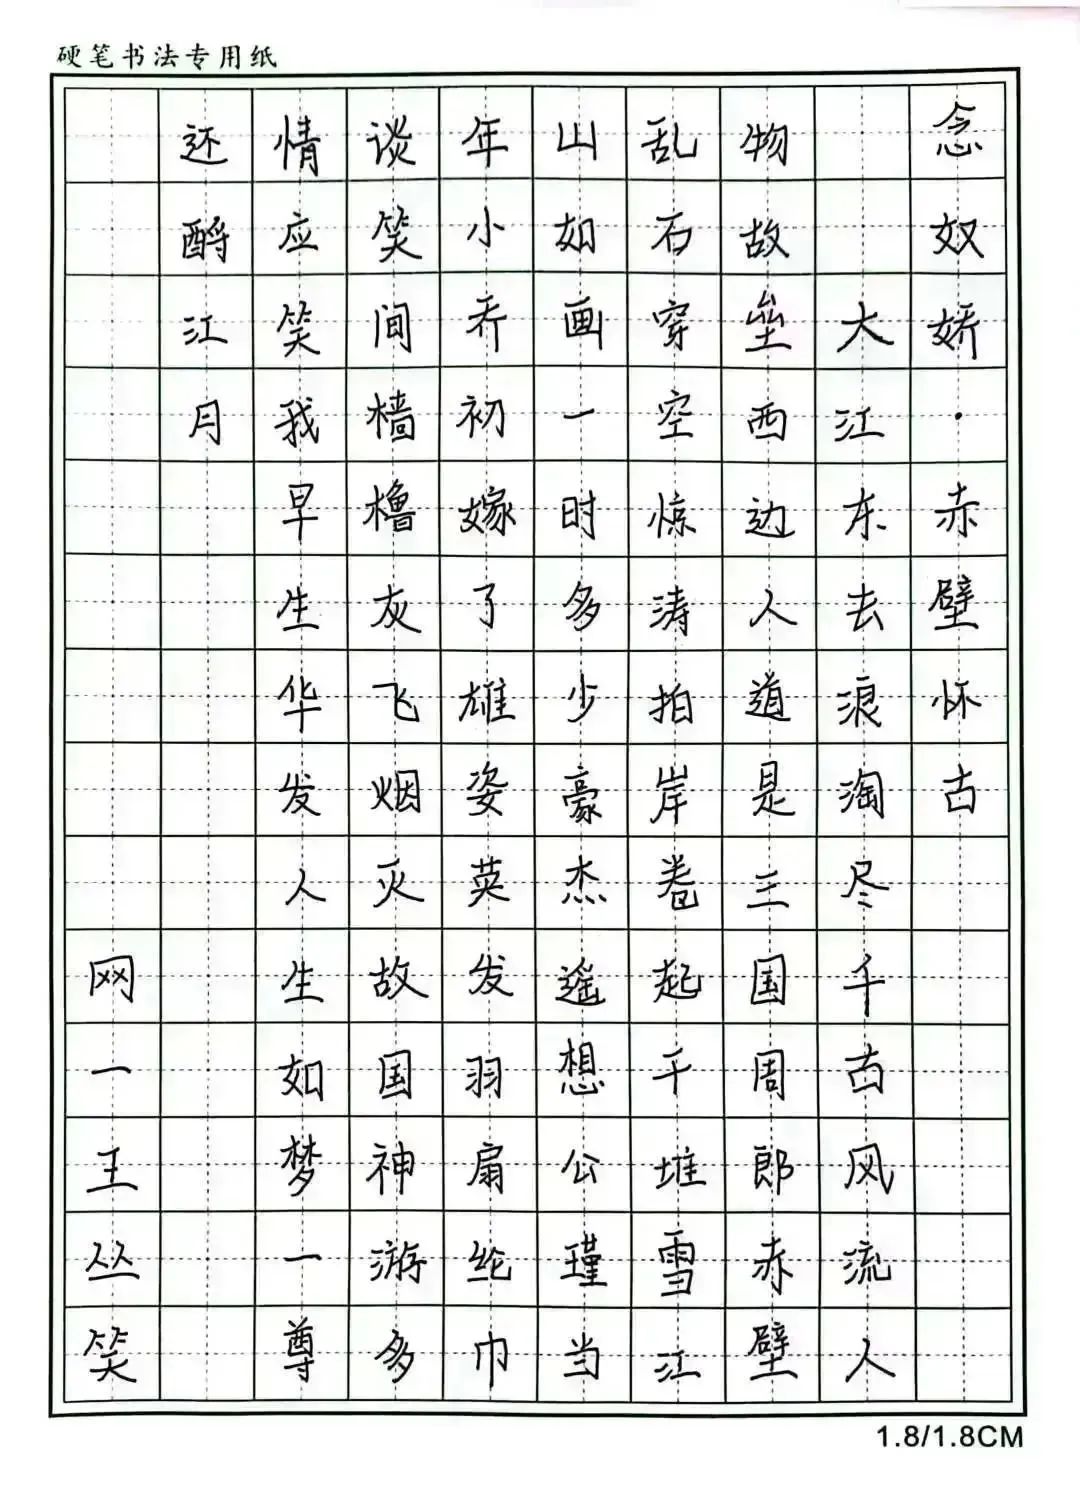 硬笔书法专用纸
念奴娇·赤壁怀古
大江东去浪淘尽千古风流人
物故垒西边人道是三国周郎赤壁
乱石穿空惊涛拍岸卷起千堆雪江
山如画一时多少豪杰遥想公瑾当
年小乔初嫁了雄姿英发羽扇纶巾
谈笑间樯橹灰飞烟灭故国神游多
情应笑我早生华发人生如梦一尊
还酹江月
网一王丛笑
1.8/1.8CM